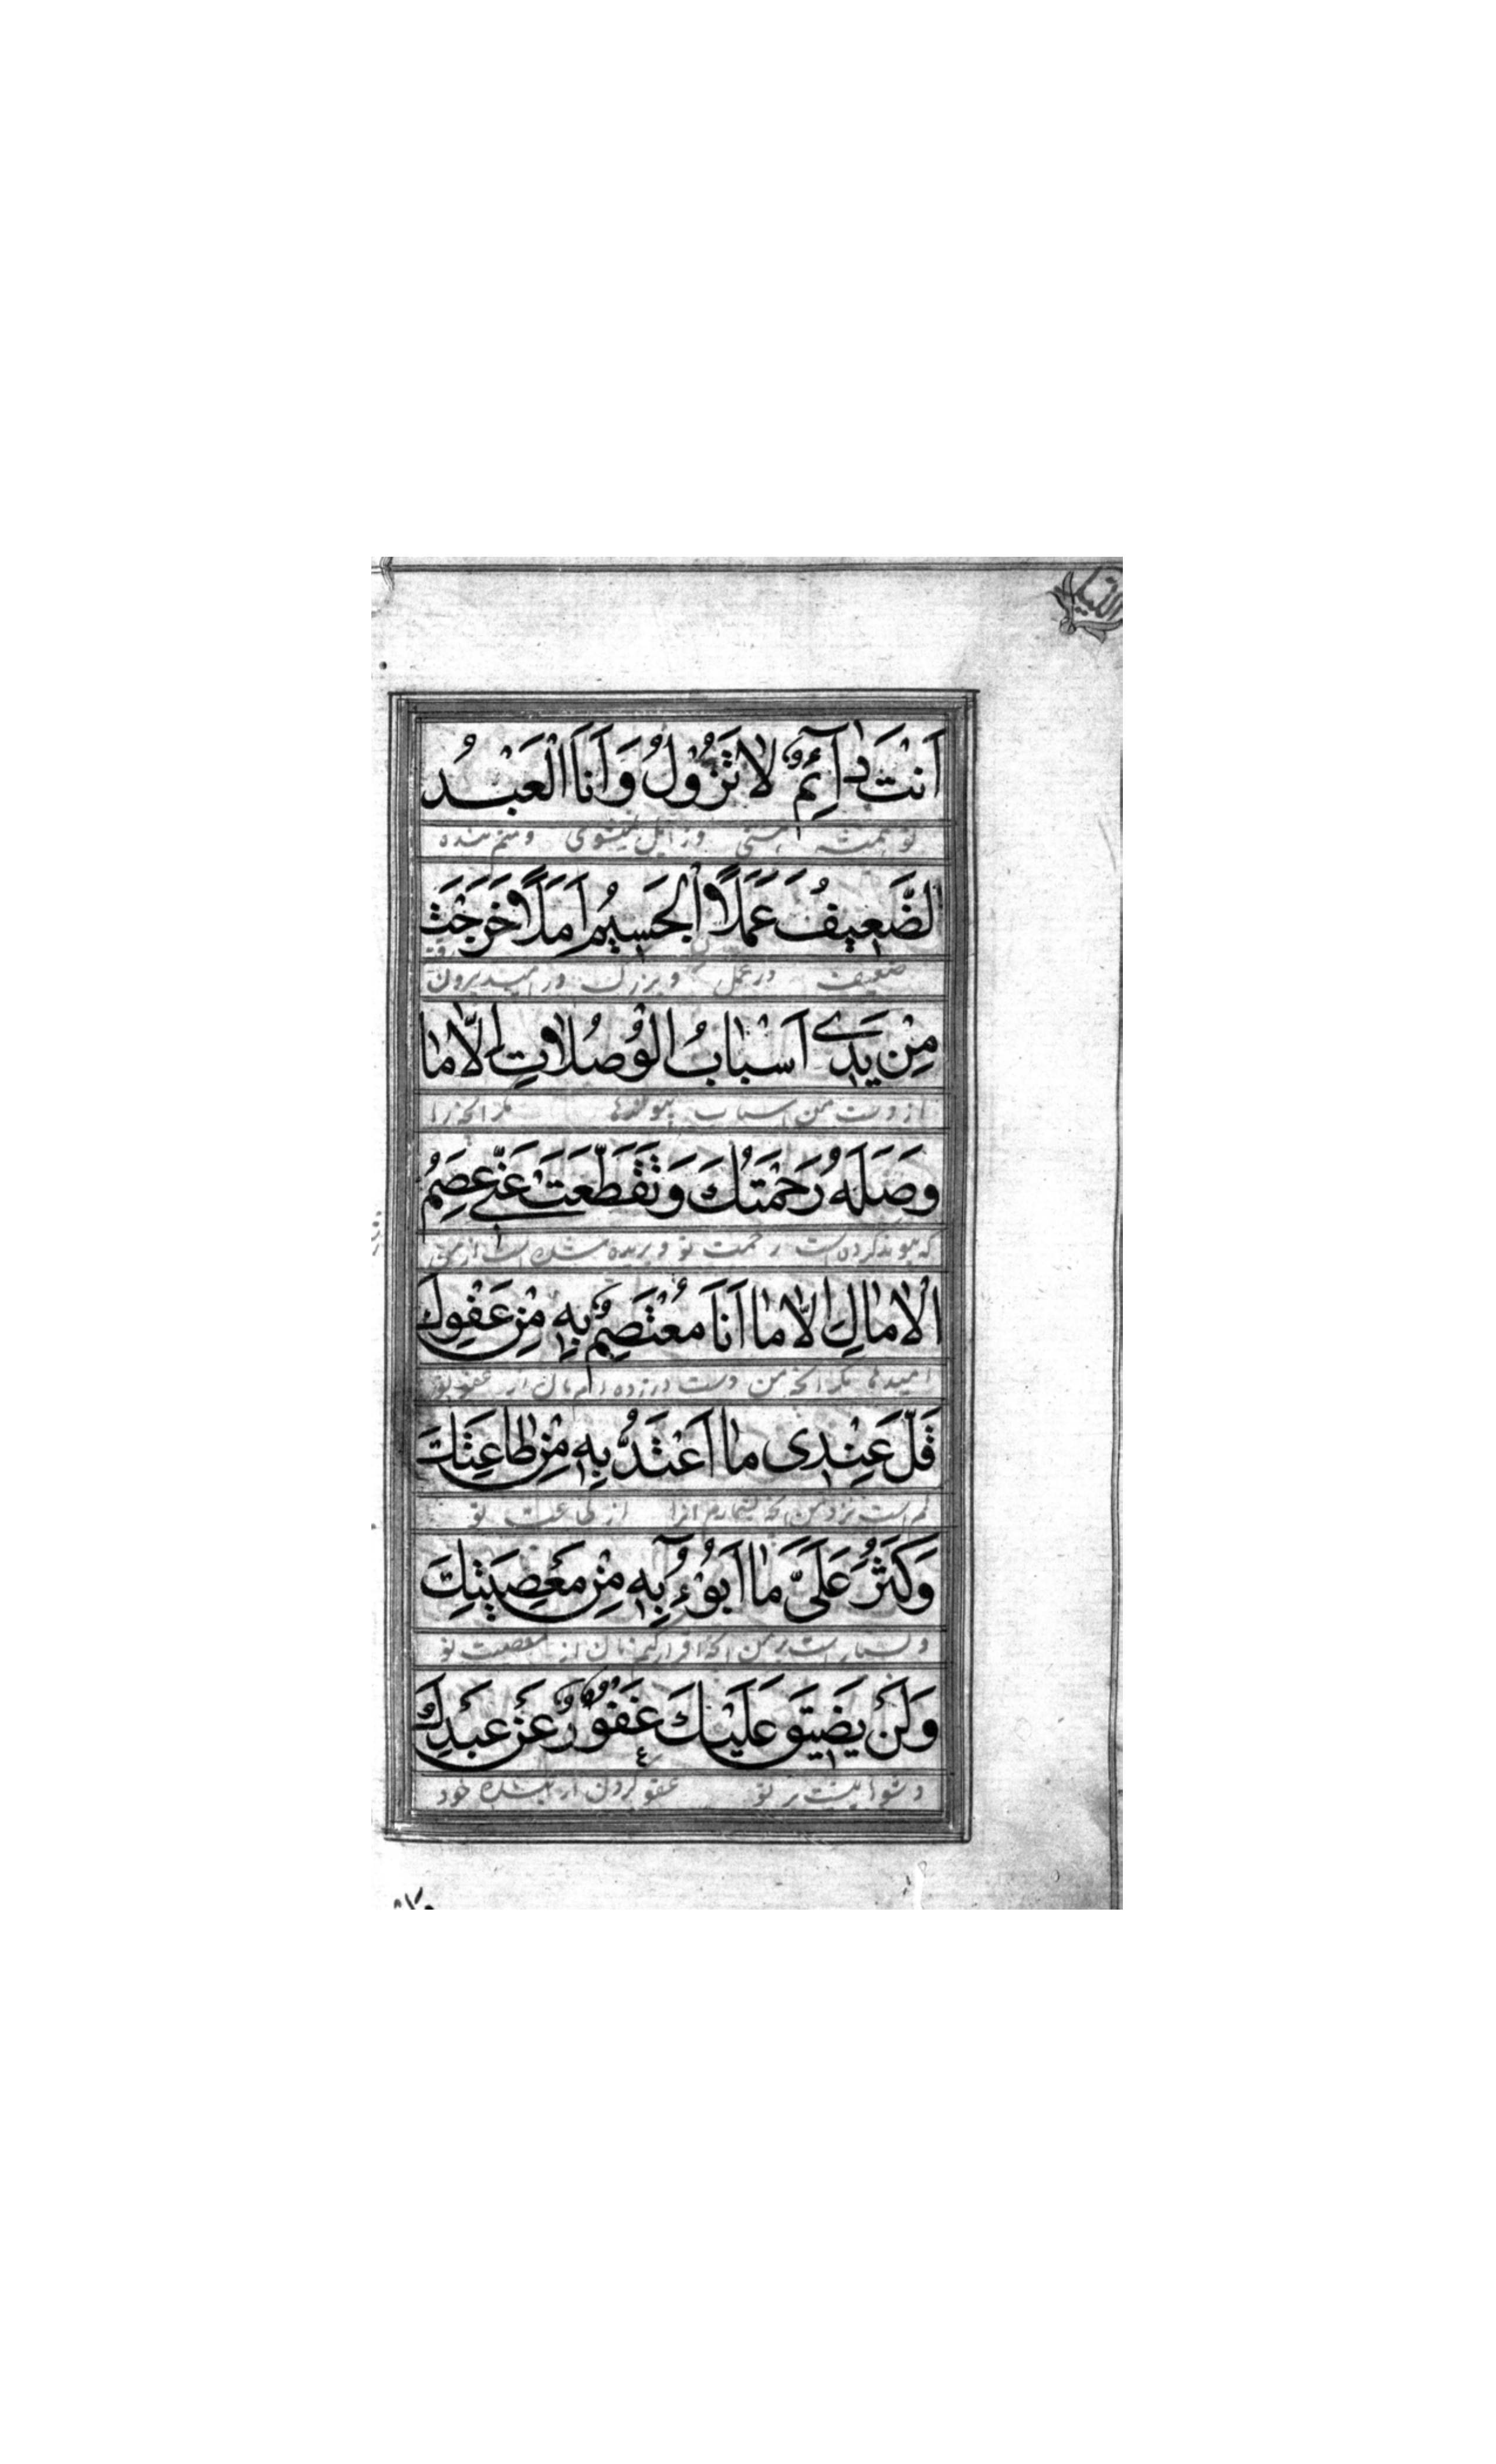 اَنْتَ دٰآئِمٌ لاٰ تَزُوْلُ وَ اَنَا الْعَبْدُ
تو همیشه هستی و زایل نمیشوی و منم بنده
الضَّعِيفُ عَمَلًا الْجَسِيْمُ اَمَلًا خَرَجَتْ
ضعیف در عمل و بزرگ در امید بیرون
مِنْ يَدَىْ اَسْبٰابُ الْوُصُلاٰتِ اِلّاٰ مٰا
از دست من اسباب پیوندها مگر آنچه را
وَصَلَهُ رَحْمَتُكَ وَ تَقَطَّعَتْ عَنّٖى عِصَمُ
که پیوند کرده است رحمت تو و بریده شده است از من
الْاٰمٰالِ اِلّاٰ مٰا اَنَا مُعْتَصِمٌ بِهٖ مِنْ عَفْوِكَ
امیدها مگر آنچه من دست در زده ام بآن از عفو تو
قَلَّ عِنْدِى مٰا اَعْتَدُّ بِهٖ مِنْ طٰاعَتِكَ
کم است نزد من آنچه بشمارم آنرا از طاعت تو
وَ كَثُرَ عَلَىَّ مٰا اَبُوْءُ بِهٖ مِنْ مَعْصِيَتِكَ
و بسیار است بر من آنچه اقرار کنم بآن از معصیت تو
وَ لَنْ يَضِيْقَ عَلَيْكَ عَفْوٌ عَنْ عَبْدِكَ
و دشوار نیست بر تو عفو کردن از بنده خود